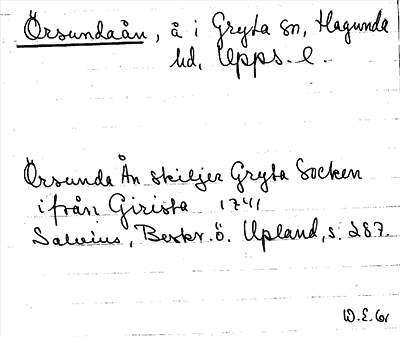 Örsundaån, å i Gryta sn, Hagunda
hd, Upps. l.
Örsunda Ån skiljer Gryta Socken
ifrån Girista 1741
Salvius, Beskr. ö. Upland, s. 287.